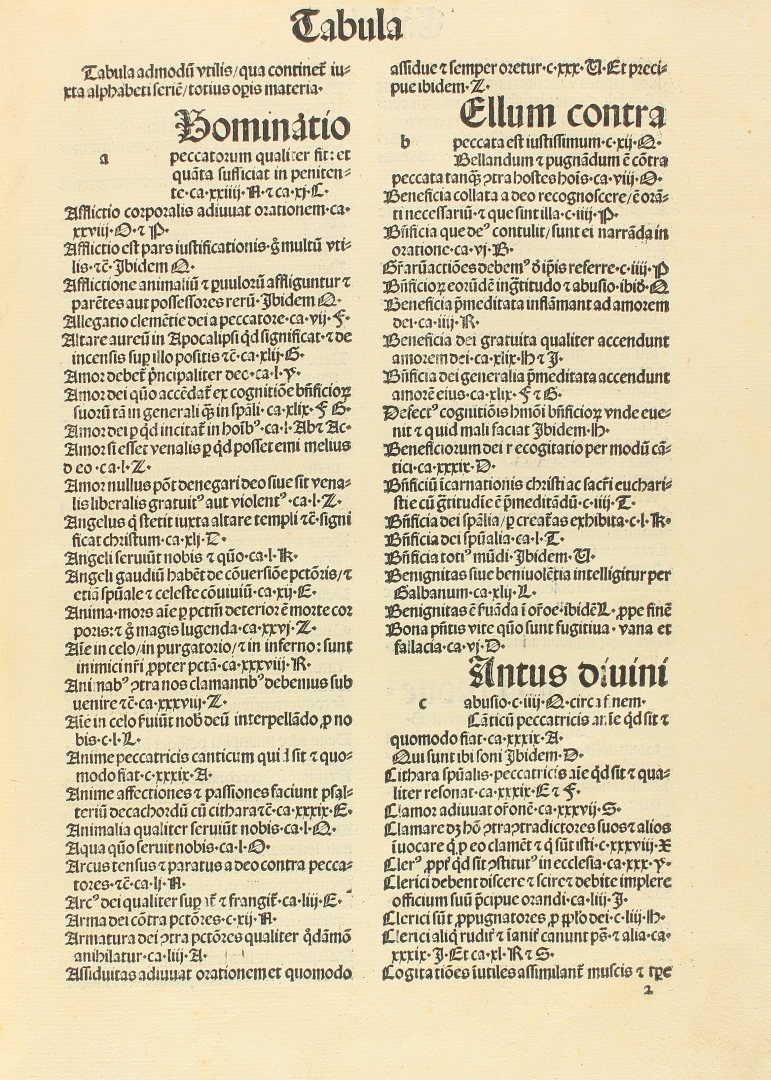 Tabula
Tabula admodū vtilis/qua continet̄ iu⸗
xta alphabeti seriē/totius oꝑis materia·
Bominatio
a peccatorum qualiter fit: et
quāta sufficiat in peniten⸗
te·ca·xxiiij·A·⁊ ca·xj·C·
Afflictio corporalis adiuuat orationem·ca·
xxviij·O·⁊ P·
Afflictio est pars iustificationis·g̊ multū vti⸗
lis·⁊c̄·Ibidem Q·
Afflictione animaliū ⁊ ꝑuuloꝝ affliguntur ⁊
parētes aut possessores rerū·Ibidem Q·
Allegatio clemētie dei a peccatore·ca·vij·F·
Altare aureū in Apocalipsi qd̄ significat·⁊ de
incensis suꝑ illo positis ⁊c̄·ca·xlij·G·
Amor debet̄ p̄ncipaliter deo·ca·l·Y·
Amor dei quō accēdat̄ ex cognitiōe bn̄ficioꝝ
suorū tā in generali qͣ̄ in spāli·ca·xlix·F G·
Amor dei ꝑ qd̄ incitat̄ in hoībꝰ·ca·l·Ab⁊ Ac·
Amor si esset venalis ꝑ qd̄ posset emi melius
deo·ca·l·Z·
Amor nullus pōt denegari deo siue sit vena⸗
lis liberalis gratuitꝰ aut violentꝰ·ca·l·Z·
Angelus q̄ stetit iuxta altare templi ⁊c̄·signi
ficat christum·ca·xlj·D·
Angeli seruiūt nobis ⁊ quō·ca·l·K·
Angeli gaudiū habēt de cōuersiōe pctōris/⁊
etiā spūale ⁊ celeste cōuiuiū·ca·xij·E·
Anima·mors aīe ꝑ pctm̄ deterior ē morte cor
poris: ⁊ g̊ magis lugenda·ca·xxvj·Z·
Aīe in celo/in purgatorio/⁊ in inferno: sunt
inimici nr̄i ꝓpter pctā·ca·xxxviij·R·
Animabꝰ ꝯtra nos clamantibꝰ debemus sub
uenire ⁊c̄·ca·xxxviij·Z·
Aīe in celo fuiūt nob̄ deū interpellādo ꝓ no
bis·c·l·L·
Anime peccatricis canticum quid sit ⁊ quo⸗
modo fiat·c·xxxix·A·
Anime affectiones ⁊ passiones faciunt psal⸗
teriū decachordū cū cithara ⁊c̄·ca·xxxix·E·
Animalia qualiter seruiūt nobis·ca·l·Q·
Aqua quō seruit nobis·ca·l·O·
Arcus tensus ⁊ paratus a deo contra pecca⸗
tores·⁊c̄·ca·lj·A·
Arcꝰ dei qualiter suꝑ it̄ ⁊ frangit̄·ca·liij·E·
Arma dei cōtra pctōres·c·xij·A·
Armatura dei ꝯtra pctōres qualiter qd̄āmō
anihilatur·ca·liij·A·
Assiduitas adiuuat orationem et quomodo
assidue ⁊ semper oretur·c·xxx·U·Et preci⸗
pue ibidem·Z·
Ellum contra
b peccata est iustissimum·c·xij·Q·
Bellandum ⁊ pugnādum ē cōtra
peccata tanqͣ̄ ꝯtra hostes hoīs·ca·viij·O·
Beneficia collata a deo recognoscere/ē orā⸗
ti necessariū·⁊ que sunt illa·c·iiij·P·
Bn̄ficia que deꝰ contulit/sunt ei narrāda in
oratione·ca·vj·B·
Gr̄arū actiōes debemꝰ d̄ ip̄is referre·c·iiij·P
Bn̄ficioꝝ eorūdē ing̊titudo ⁊ abusio·ibid̄·Q
Beneficia p̄meditata inflāmant ad amorem
dei·ca·iiij·R·
Beneficia dei gratuita qualiter accendunt
amorem dei·ca·xlix·H ⁊ I·
Bn̄ficia dei generalia p̄meditata accendunt
amorē eius·ca·xlix·F ⁊ G·
Defectꝰ cognitiōis hmōi bn̄ficioꝝ vnde eue⸗
nit ⁊ quid mali faciat Ibidem·H·
Beneficiorum dei recogitatio per modū cā⸗
tici·ca·xxxix·D·
Bn̄ficiū īcarnationis christi ac sacr̄i euchari⸗
stie cū g̊titudīe ē p̄meditādū·c·iij·T·
Bn̄ficia dei spālia/ꝑ creatas exhibita·c·l·K·
Bn̄ficia dei spūalia·ca·l·T·
Bn̄ficia totiꝰ mūdi·Ibidem·U·
Benignitas siue beniuolētia intelligitur per
Galbanum·ca·xlij·L·
Benignitas ē fuāda ī or̄oe·ibidē L·ꝓpe finē
Bona pn̄tis vite quō sunt fugitiua·vana et
fallacia·ca·vj·D·
Antus diuini
c abusio·c·iiij·Q·circa finem·
Cāticū peccatricis anīe qd̄ sit ⁊
quomodo fiat·ca·xxxix·A·
Qui sunt ibi soni Ibidem·D·
Cithara spūalis·peccatricis aīe qd̄ sit ⁊ qua⸗
liter resonat·ca·xxxix·E ⁊ F·
Clamor adiuuat or̄onē·ca·xxxvij·S·
Clamare dꝫ hō ꝯtra ꝯtradictores suos ⁊ alios
īuocare q̄ ꝑ eo clamēt ⁊ q̄ sūt isti·c·xxxviij·X
Clerꝰ ꝓpt̄ qd̄ sit ꝯstitutꝰ in ecclesia·ca·xxx·Y·
Clerici debent discere ⁊ scire ⁊ debite implere
officium suū p̄cipue orandi·ca·liij·I·
Clerici sūt ꝓpugnatores ꝓ pp̄lo dei·c·liij·H·
Clerici aliq̄ rudit̄ ⁊ īanit̄ canunt ps̄·⁊ alia·ca·
xxxix·I·Et ca·xl·R ⁊ S·
Cogitatiōes īutiles assimilant̄ muscis ⁊ tꝑe
2